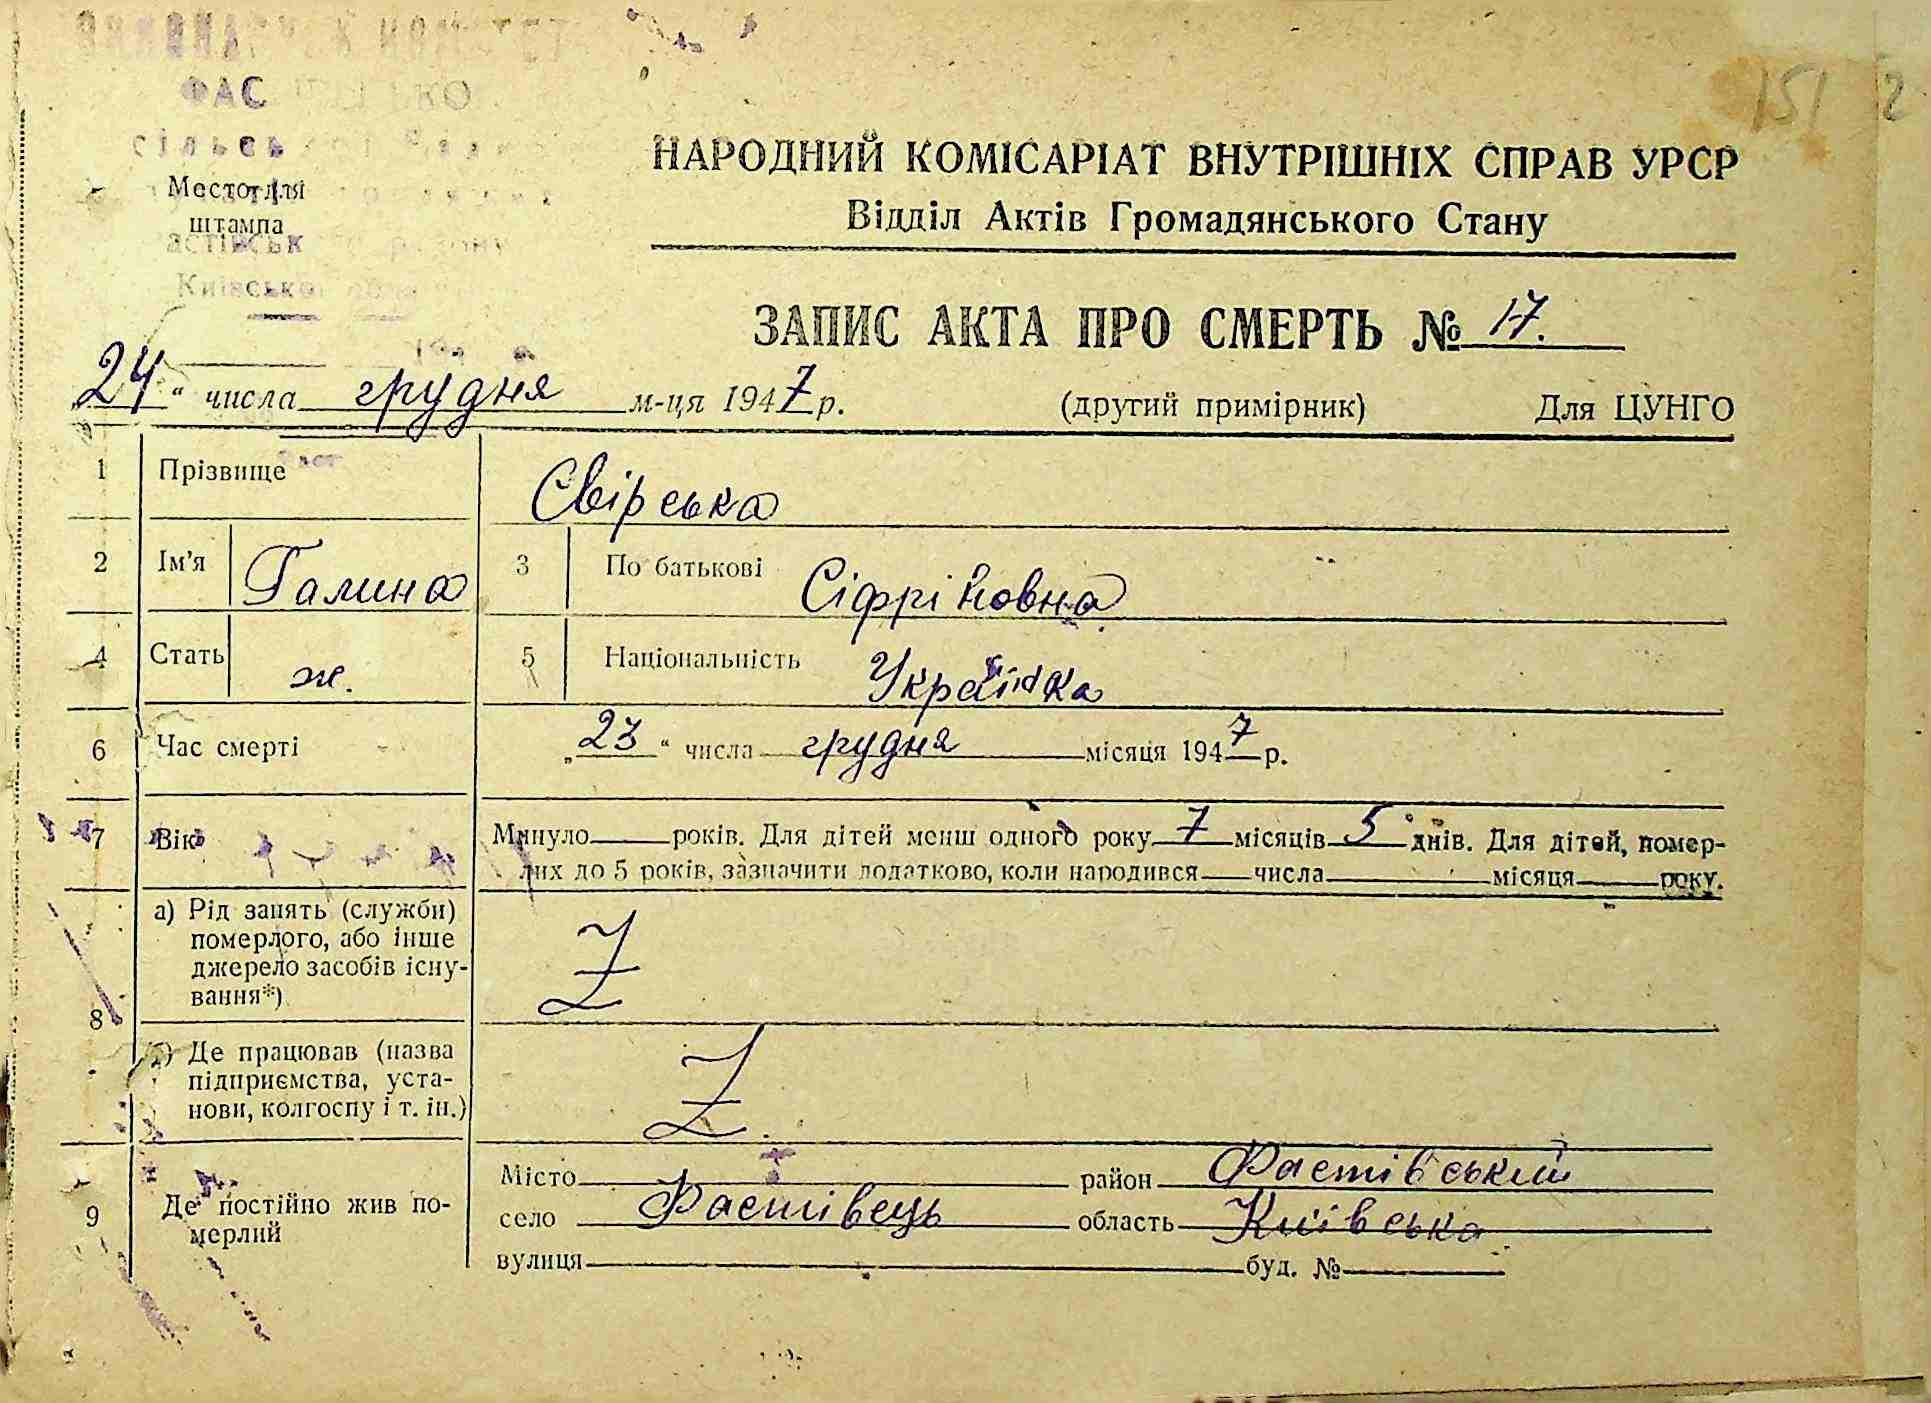 ФАС
Место для
штампа
Київсько
151 2
НАРОДНИЙ КОМІСАРІАТ ВНУТРІШНІХ СПРАВ УРСР
Відділ Актів Громадянського Стану
ЗАПИС АКТА ПРО СМЕРТЬ № 17.
„24“ числа грудня м-ця 1947 р. (другий примірник) Для ЦУНГО
1 Прізвище Свірська
2 Ім'я Галина 3 По батькові Сіфріновна
4 Стать ж. 5 Національність Українка
6 Час смерті „23“ числа грудня місяця 1947 р.
7 Вік Минуло ___ років. Для дітей менш одного року 7 місяців 5 днів. Для дітей, помер-
лих до 5 років, зазначити додатково, коли народився ___ числа ___ місяця ___ року.
8 а) Рід занять (служби)
померлого, або інше
джерело засобів існу-
вання*) Z
б) Де працював (назва
підприємства, уста-
нови, колгоспу і т. ін.) Z
9 Де постійно жив по-
мерлий
Місто ___ район Фастівський
село Фастівець область Київська
вулиця ___ буд. № ___